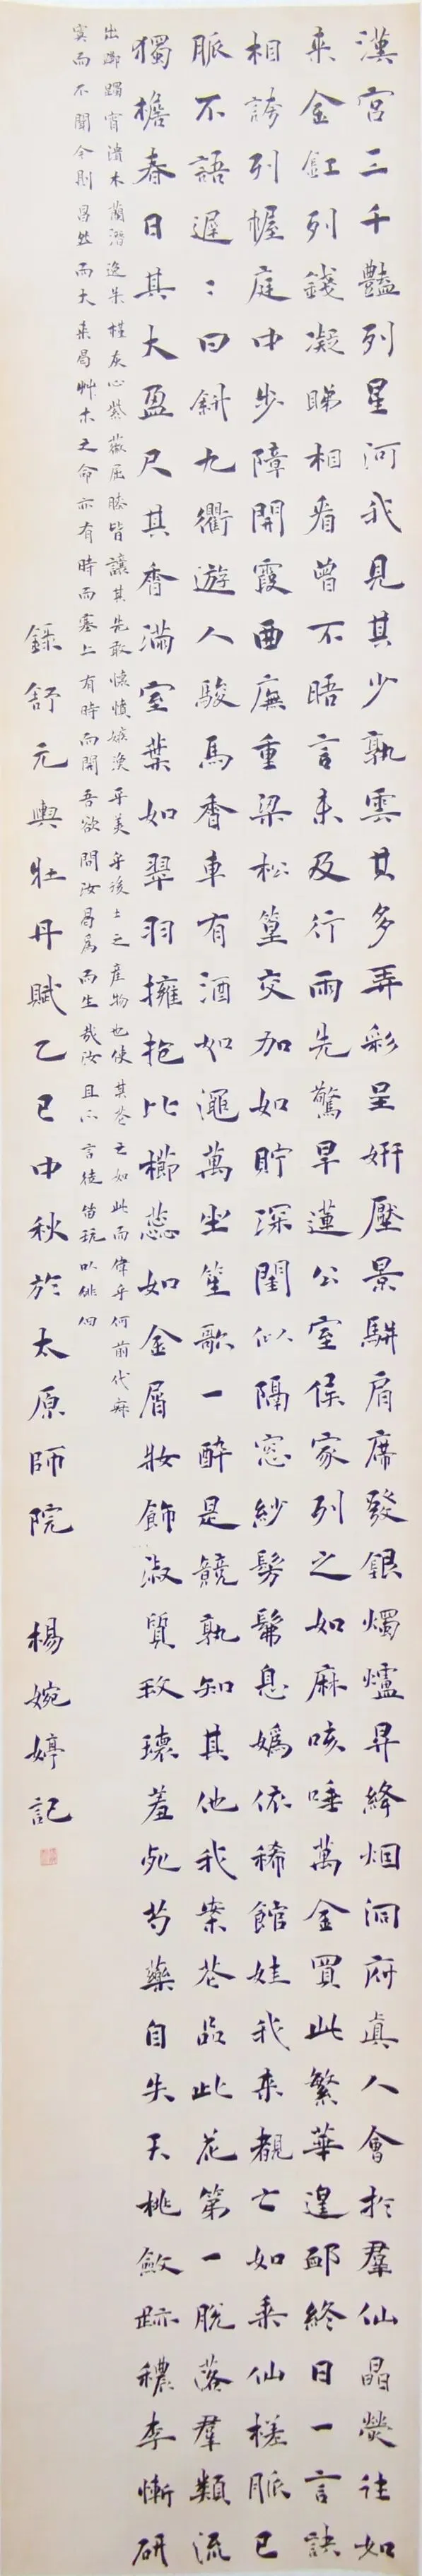 漢宮三千艷列星河我見其少孰雲其多弄彩呈妍壓景駢肩席發銀燭爐昇絳烟洞府真人會於羣仙晶熒往如
來金釭列錢凝睇相看曾不晤言未及行雨先驚旱蓮公室侯家列之如麻咳唾萬金買此繁華遑卹終日一言訣
相誇列幄庭中步障開霞曲廡重梁松篁交加如貯深閨似隔窓紗髣髴息媯依稀館娃我來覩之如乘仙槎脈已
脈不語遲:日斜九衢遊人駿馬香車有酒如澠萬坐笙歌一醉是競孰知其他我案花品此花第一脫落羣類流
獨擔春日其大盈尺其香滿室葉如翠羽擁抱比櫛蕊如金屑妝飾淑質玫瓌羞死芍藥自失夭桃斂跡穠李慚硏
出躑躅宵潰木蘭潛逸朱槿灰心紫薇屈膝皆讓其先敢懷憤嫉渙乎美乎後土之產物也使其花之如此而偉乎何前代寂
寞而不聞今則昌然而大來曷艸木之命亦有時而塞上有時而開吾欲問汝曷為而生哉汝且不言徒留玩以徘徊
錄舒元輿牡丹賦乙巳中秋於太原師院 楊婉婷記